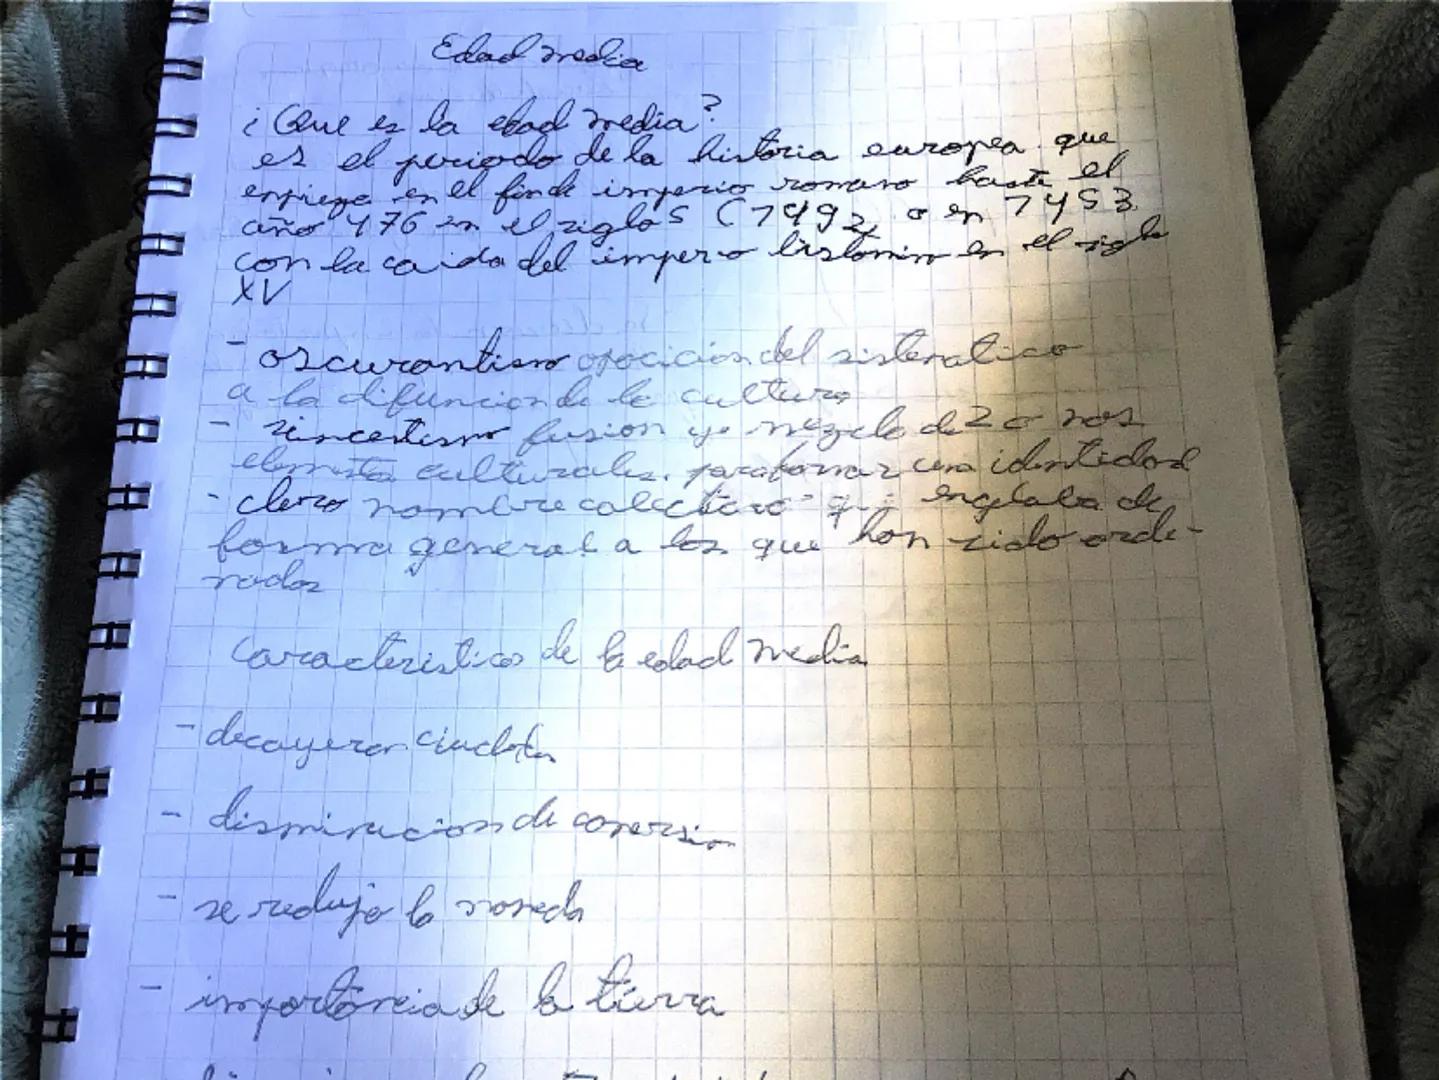 Edad media
¿Que es la edad media?
es el periodo de la historia europea que
empieza en el fin de imperio romano hasta el
año 476 en el siglo 5 (1492 o en 1453
con la caida del impero en el siglo
XV
- oscurantismo opocicion del sistematico
a la difuncion de la cultura
- fusion y mezcla de 2 o mas
elementos culturales. para formar una identidad
- clero nombre colectivo q englaba de
forma general a los que han sido orde-
nados
caracteristicas de la edad media
- decayeron ciudades
- disminucion de comersio
- se redujo la moneda
- importáncia de la tierra